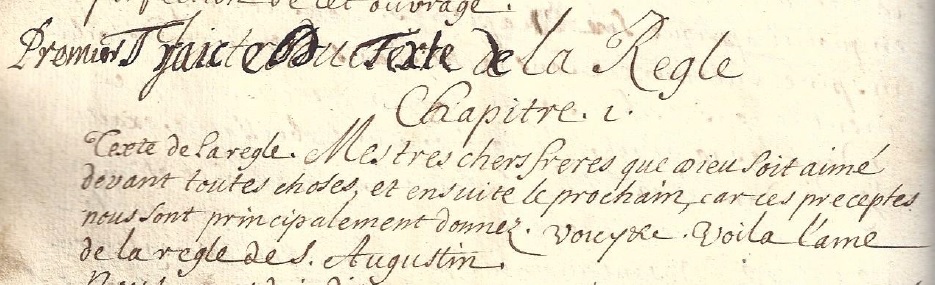 perfection de cet ouvrage.
Premier Traicté Du Texte de la Regle
Chapitre. 1.
Texte de la regle. Mes tres chers freres que Dieu soit aimé
devant toutes choses, et ensuite le prochain, car ces preceptes
nous sont principalement donnez. Voila l'ame
de la regle de S. Augustin.